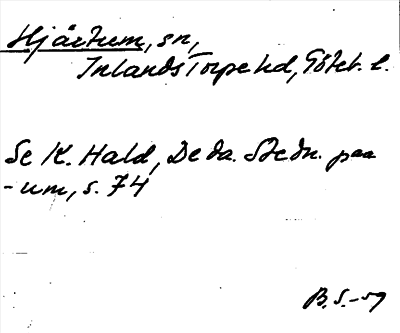 Hjärtum, sn,
Inlands Torpe hd, Göteb. l.
Se K. Hald, De da. Stedn. paa
-um, s. 74
B.S.-59